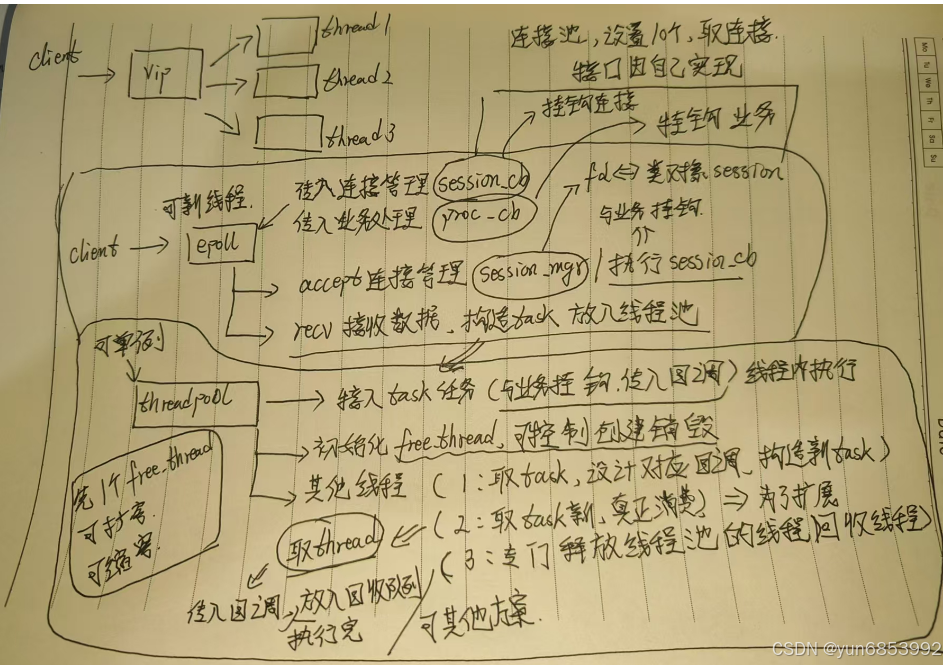 client
vip
thread1
thread2
thread3
连接池,设置10个,取连接.
接口由自己实现
挂钩连接
挂钩业务
可新线程.
传入连接管理 session_cb
传入业务处理 proc_cb
client
epoll
fd⇔类对象session
与业务挂钩.
accept 连接管理 session_mgr / 执行session_cb
recv 接收数据、构造task 放入线程池
可单例
threadpool
接入task任务(与业务挂钩.传入回调)线程内执行
初始化 free_thread, 可控制创建销毁
其他线程 (1:取task,设计对应回调、构造新task)
(2:取task新,真正消费) ⇒ 为了扩展
(3:专门释放线程池的线程回收线程)
1个free_thread
可扩容.
可缩容.
取thread
传入回调
放入回收队列
执行完
可其他方案.
CSDN @yun6853992